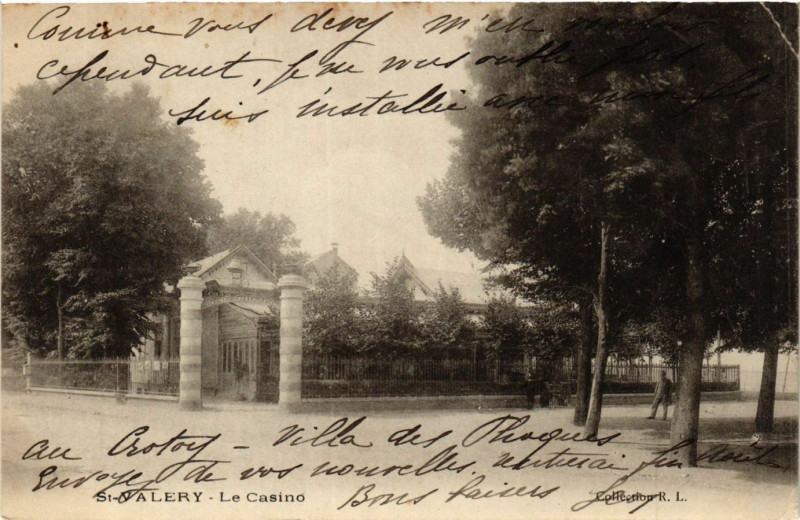 Comme vous devez m'en vouloir
cependant, je ne vous oublie pas,
suis installée avec
au Crotoy - Villa des Phoques
Envoyez de vos nouvelles. fin Août
Bons baisers
St-VALERY - Le Casino
Collection R. L.